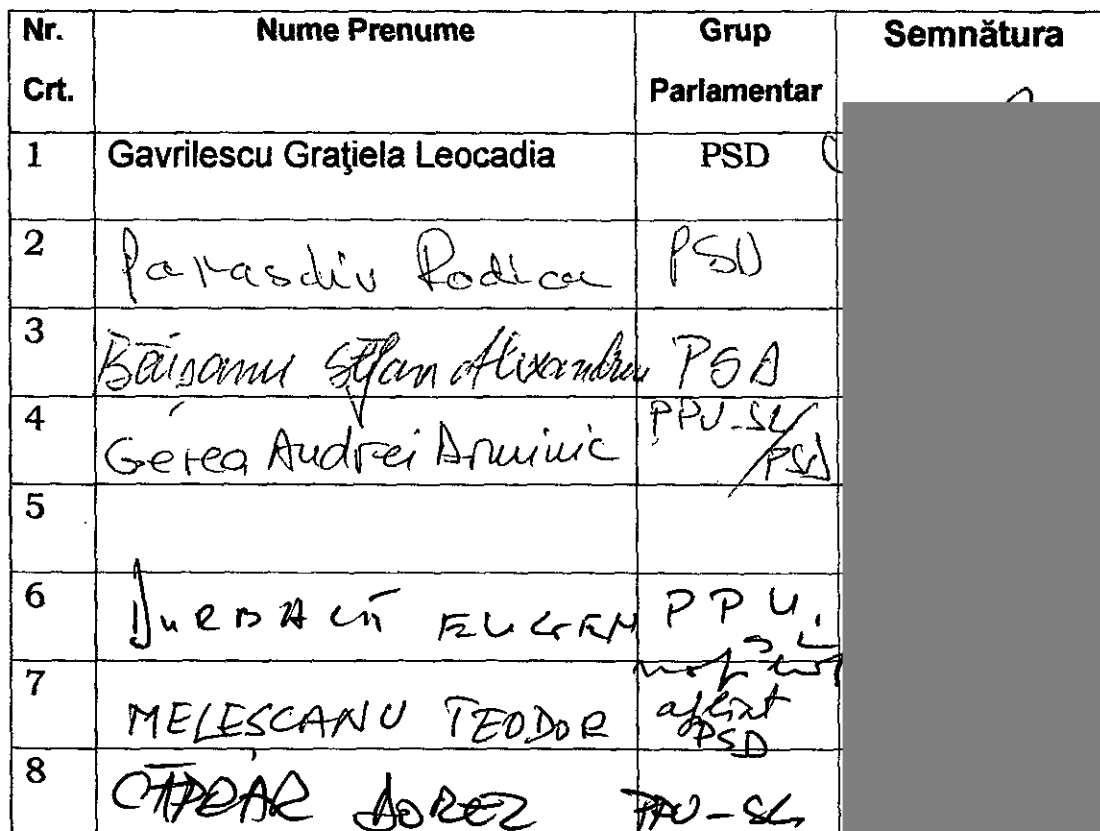 Nr. Crt. Nume Prenume Grup Parlamentar Semnătura
1 Gavrilescu Graţiela Leocadia PSD
2 Paraschiv Rodica PSD
3 Băişanu Ştefan Alexandru PSD
4 Gerea Andrei Dominic PPU-SL/PSD
5
6 DURBACĂ EUGEN PPU.SL
7 MELEŞCANU TEODOR afiliat PSD
8 PPU-SL